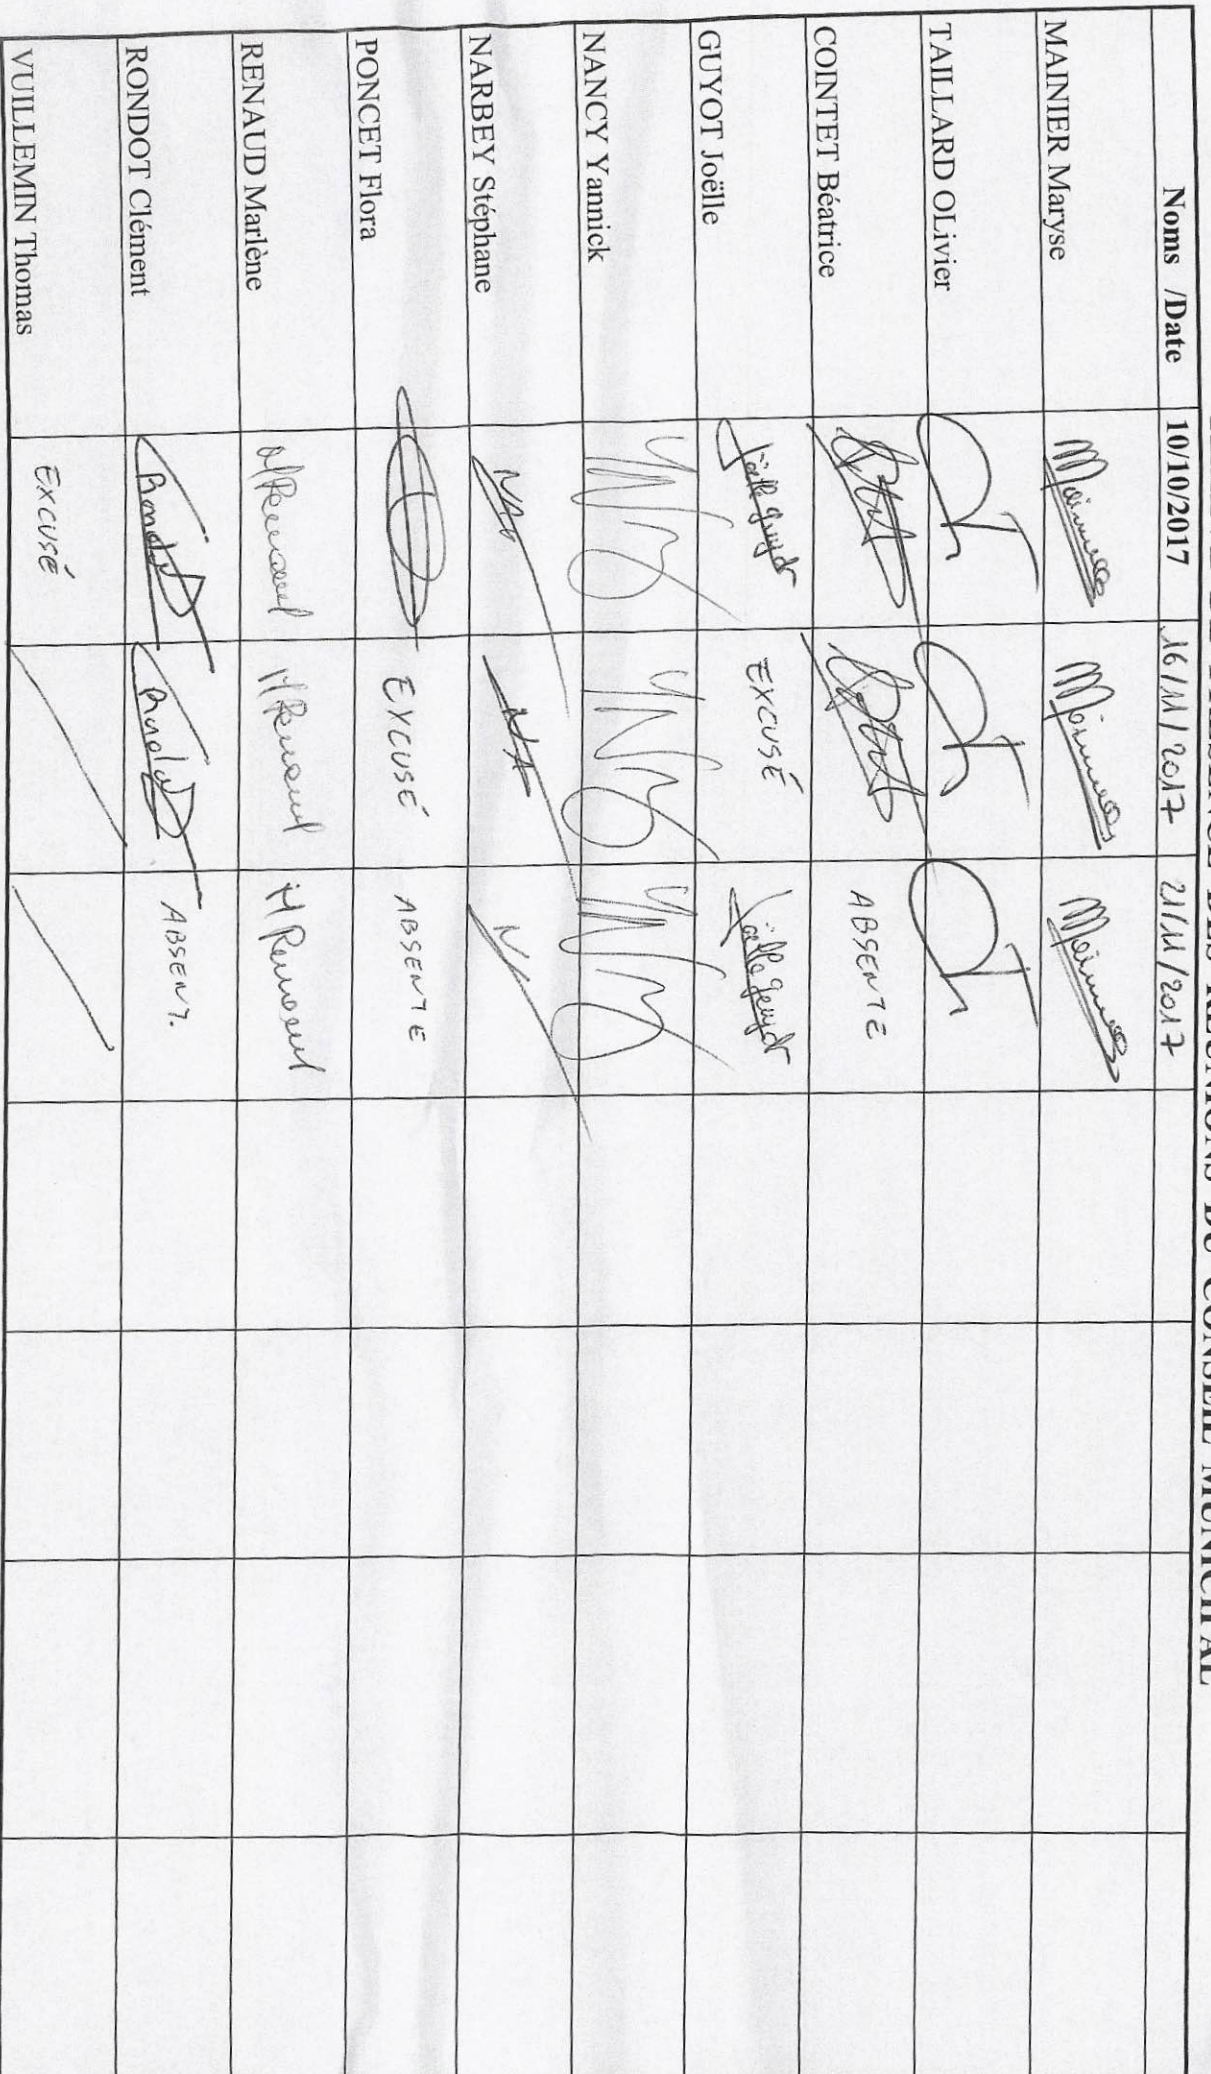 PRÉSENCE DES RÉUNIONS DU CONSEIL MUNICIPAL
Noms /Date 10/10/2017 16/11/2017 21/11/2017
MAINIER Maryse
TAILLARD OLivier
COINTET Béatrice ABSENTE
GUYOT Joëlle Joëlle Guyot EXCUSÉ Joëlle Guyot
NANCY Yannick
NARBEY Stéphane
PONCET Flora EXCUSÉ ABSENTE
RENAUD Marlène M Renaud M Renaud M Renaud
RONDOT Clément Rondot Rondot ABSENT.
VUILLEMIN Thomas EXCUSÉ